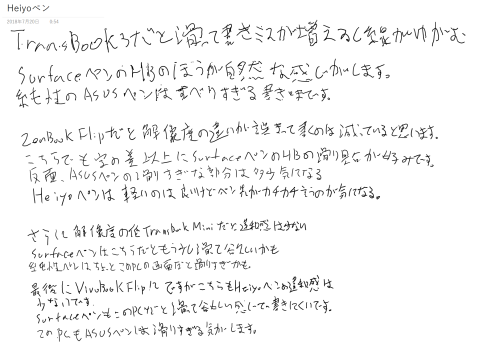 Heiyoペン
2018年7月20日 8:04
TransBook3だと滑って書きミスが増えるし線がゆがむ
Surfaceペンの HBのほうが自然な感じがします。
純性のASUSペンはすべりすぎる書き味です。
ZenBook Flipだと解像度の違いが誤差で書くのは減っていると思います。
こちらでも空の差以上にSurfaceペンのHBの滑り具合が好みです。
反面、ASUSペンの滑りすぎな部分は多少気になる
Heiyoペンは軽いのは良いけどペン先がカチカチいうのが気になる。
さらに解像度の低TransBook Miniだと違和感は少ない
Surfaceペンはこちらだともう少し滑って欲しいかも
純性ペンはちょっとこのPCの画面だと滑りすぎかも
最後にVivoBook Flipにですがこちらもheiyoペンの違和感は
少ないです。
SurfaceペンもこのPCだと滑って欲しい感じで書きにくいです。
このPCもASUSペンは滑りすぎる気がします。